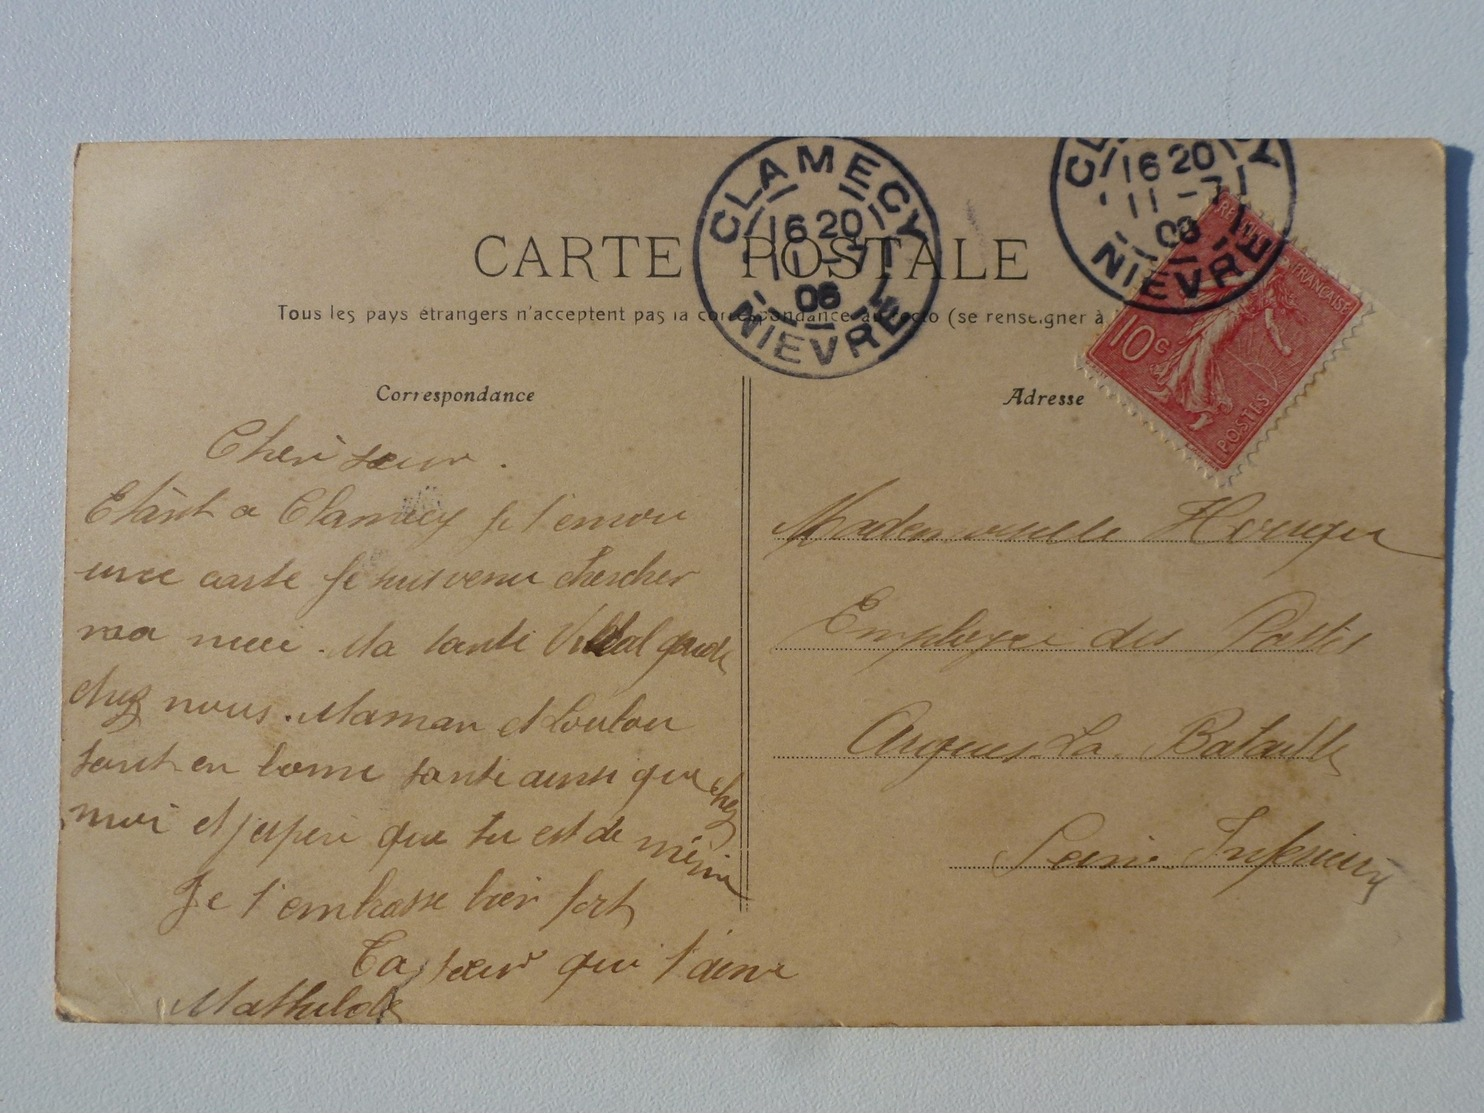 CLAMECY
16 20
11 - 7
06
NIEVRE
CL CY
16 20
11 - 7
06
NIEVRE
CARTE POSTALE
Tous les pays étrangers n'acceptent pas la correspondance au recto (se renseigner à
FRANÇAISE
10 C
POSTES
Correspondance
Cheri sœur.
Etant a Clamecy je t'envoi
une carte je suis venu chercher
ma  . Ma tante Vidal garde
chez nous. Maman et Loulou
sont en bonne sante ainsi que chez
moi et j'esperi que tu est de même
Je t'embrasse bien fort
Ta sœur qui t'aime
Mathilde
Adresse
Mademoiselle
Employee des Postes
Arques La Bataille
Seine Inferieure